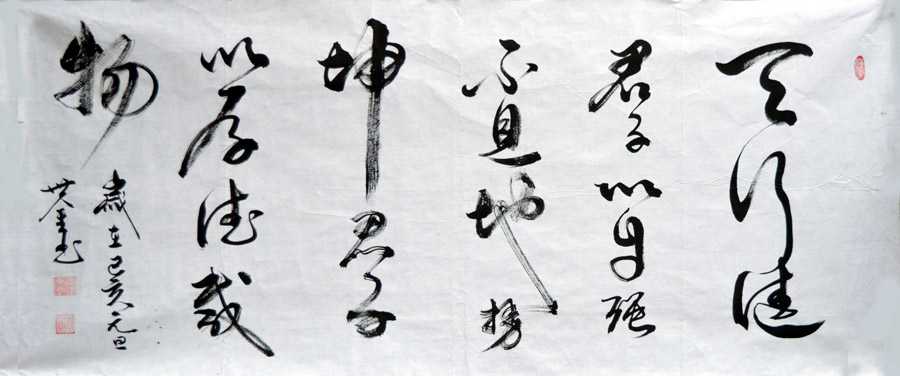 天行健
君子以自强
不息地势
坤君子
以厚德载
物
歲在己亥元旦